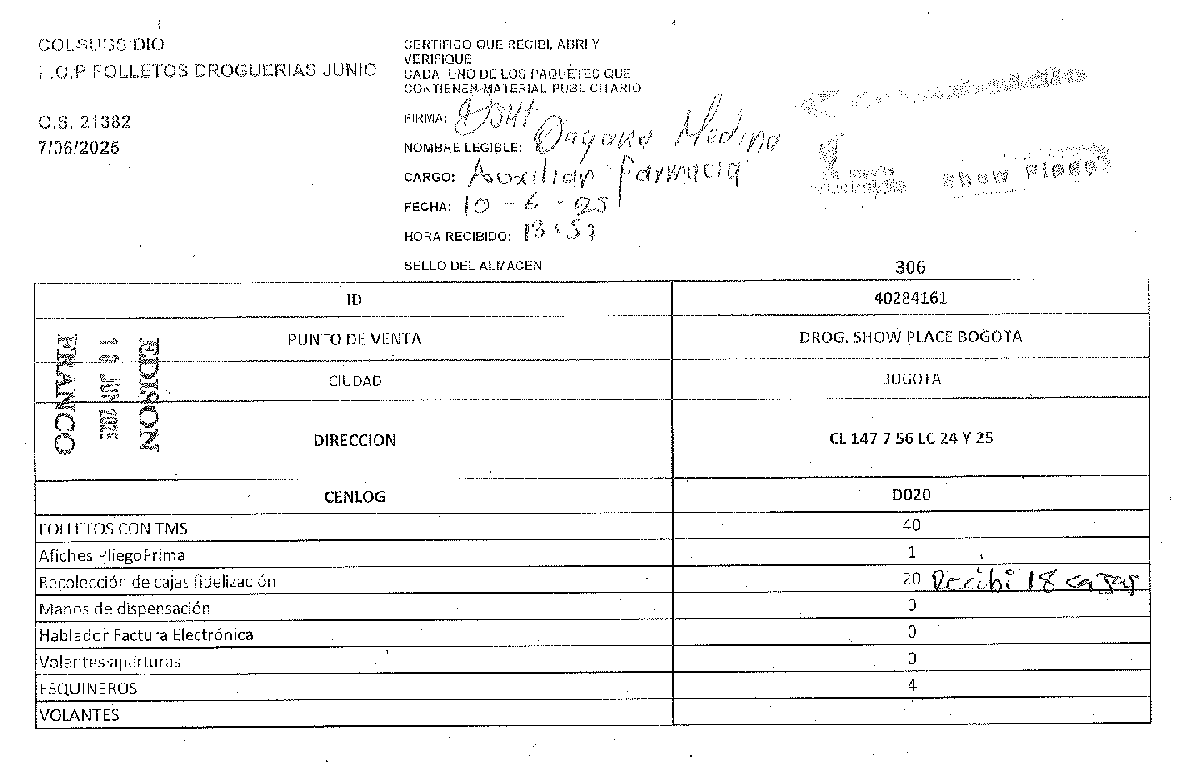 COLSUBSIDIO
P.O.P FOLLETOS DROGUERIAS JUNIO
O.S. 21382
7/06/2025
CERTIFICO QUE RECIBI, ABRI Y
VERIFIQUE
CADA UNO DE LOS PAQUETES QUE
CONTIENEN MATERIAL PUBLICITARIO
FIRMA:
NOMBRE LEGIBLE: Dayana Medina
CARGO: Auxiliar Farmacia
FECHA: 10 - 6 - 25
HORA RECIBIDO: 13:57
SELLO DEL ALMACEN
Show Place
306
ID 40284161
PUNTO DE VENTA DROG. SHOW PLACE BOGOTA
CIUDAD BOGOTA
DIRECCION CL 147 7 56 LC 24 Y 25
CENLOG D020
EDISON
JUN
FRANCO
FOLLETOS CON TMS 40
Afiches Pliego Prima 1
Recolección de cajas fidelización 20 Recibi 18 cajas
Manos de dispensación 0
Hablador Factura Electrónica 0
Volantes aperturas 0
ESQUINEROS 4
VOLANTES